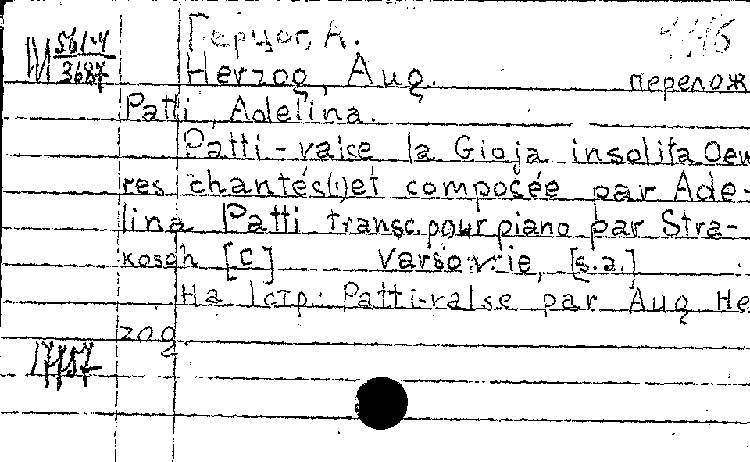 М 561-4/3687
Герцог, А.
Herzog, Aug.
перелож
Patti, Adelina.
Patti-valse la Gioja insolita Oeuv
res chantés(!)et composée par Ade-
lina Patti transc. pour piano par Stra-
kosch [C] Varsovie, [s.a.]
На 1стр: Patti-valse par Aug He
zog
17757